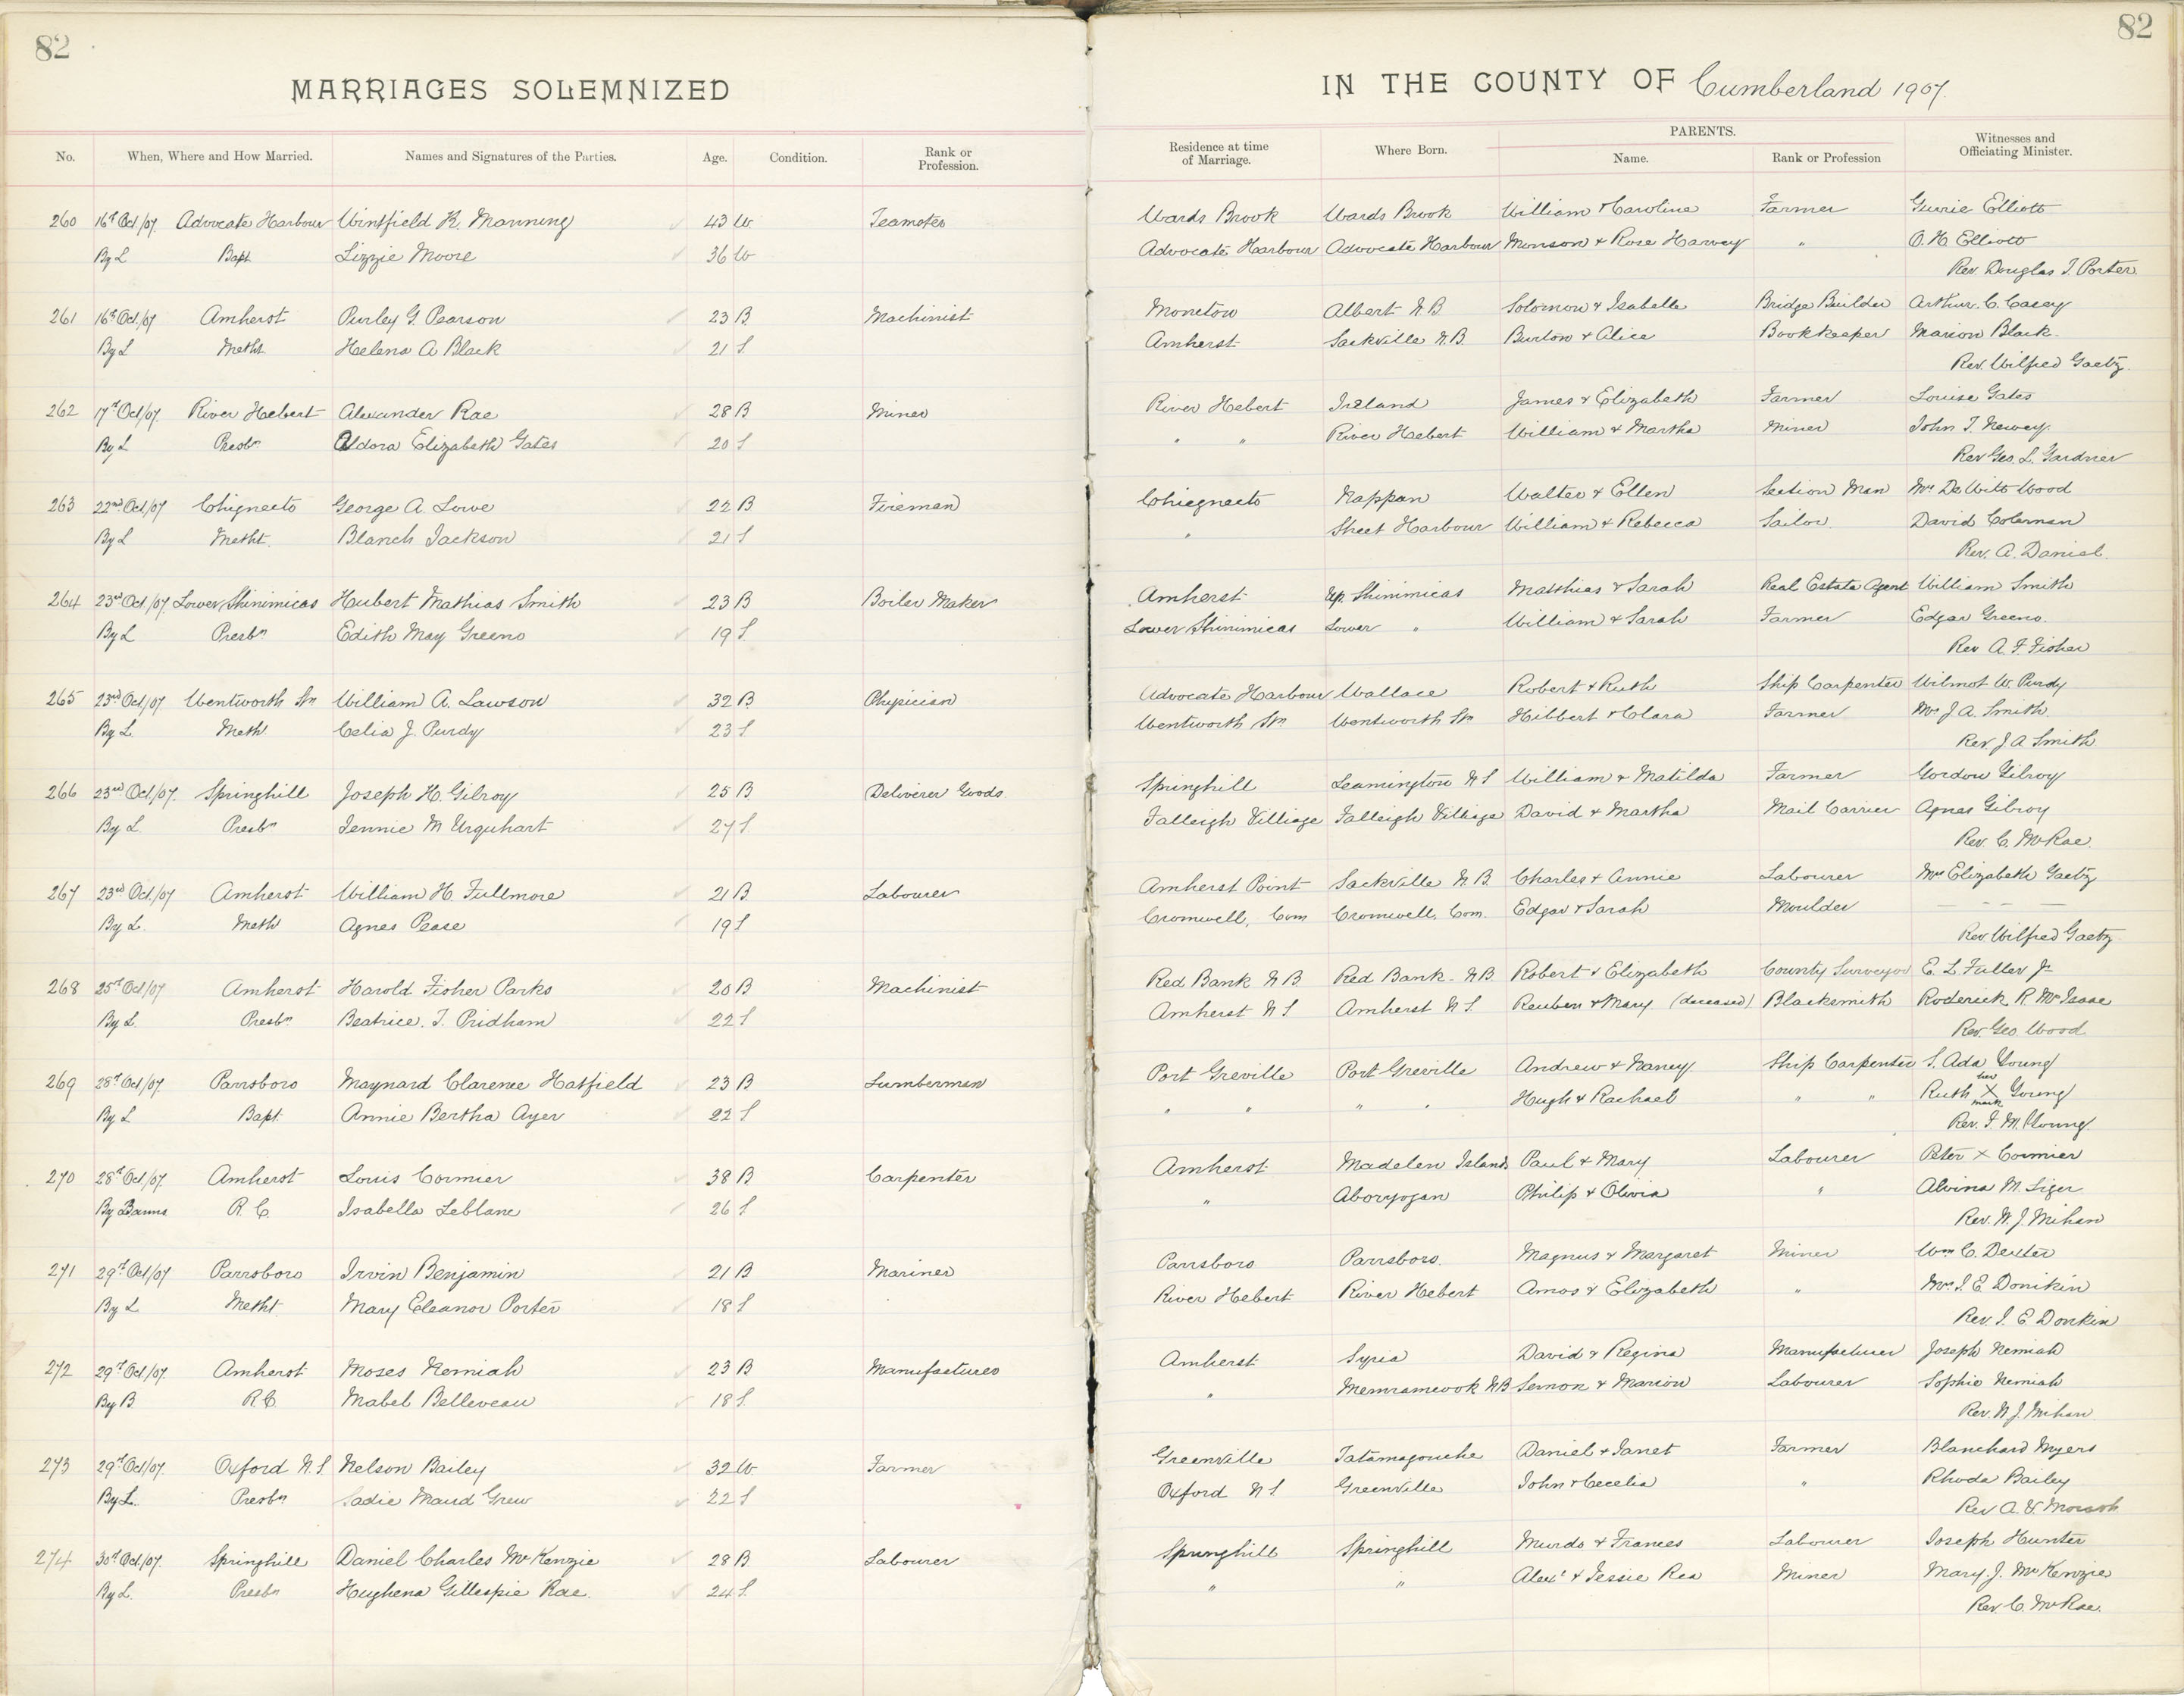 82
82
MARRIAGES SOLEMNIZED
IN THE COUNTY OF Cumberland 1907.
No. When, Where and How Married. Names and Signatures of the Parties. Age. Condition. Rank or Profession. Residence at time of Marriage. Where Born. PARENTS. Name. Rank or Profession Witnesses and Officiating Minister.
260 16th Oct/07 Advocate Harbour Wintfield R. Manning 43 W Teamster Wards Brook Wards Brook William & Caroline Farmer Elliott
By L Bapt Lizzie Moore 36 W Advocate Harbour Advocate Harbour Monson & Rose Harvey " O. H Elliott
Rev. Douglas I. Porter
261 16th Oct/07 Amherst Purley G. Pearson 23 B Machinist Moncton Albert N B Solomon & Isabella Bridge Builder Arthur. C. Casey
By L Metht Helena A Black 21 S Amherst Sackville N. B. Burton & Alice Bookkeeper Marion Black
Rev. Wilfred Gaetz
262 17th Oct/07 River Hebert Alexander Rae 28 B Miner River Hebert Ireland James & Elizabeth Farmer Louise Gates
By L Presbn Aldora Elizabeth Gates 20 S " " River Hebert William & Martha Miner John T. Newey.
Rev Geo. L. Gardner
263 22nd Oct/07 Chignecto George A. Lowe 22 B Fireman Chiegnecto Nappan Walter & Ellen Section Man Mrs DeWitt Wood
By L Metht. Blanch Jackson 21 S " Sheet Harbour William & Rebecca Sailor David Coleman
Rev. A. Daniel.
264 23rd Oct/07 Lower Shinimicas Hubert Mathias Smith 23 B Boiler Maker Amherst Up. Shinimicas Matthias & Sarah Real Estate Agent William Smith
By L Presbn Edith May Greeno 19 S. Lower Shinimicas Lower " William & Sarah Farmer Edgar Greeno.
Rev A. F. Fisher
265 23rd Oct/07 Wentworth Stn William A. Lawson 32 B Physician Advocate Harbour Wallace Robert & Ruth Ship Carpenter Wilmot W. Purdy
By L Meth. Celia J. Purdy 23 S Wentworth Stn. Wentworth Stn Hibbert & Clara Farmer Mrs J. A. Smith
Rev J. A Smith
266 23rd Oct/07. Springhill Joseph H. Gilroy 25 B Deliverer Goods. Springhill Leamington N S William & Matilda Farmer Gordon Gilroy
By L Presbn Jennie M Urquhart 27 S Falleigh Village Falleigh Village David & Martha Mail Carrier Agnes Gilroy
Rev. C. McRae.
267 23rd Oct/07 Amherst William H. Fullmore 21 B Labourer Amherst Point Sackville N. B. Charles & Annie Labourer Mrs Elizabeth Gaetz
By L. Meth Agnes Pease 19 S Cromwell, Com Cromwell, Com. Edgar & Sarah Moulder — — —
Rev. Wilfred Gaetz
268 25th Oct/07 Amherst Harold Fisher Parks 20 B Machinist Red Bank N B. Red Bank. N B. Robert & Elizabeth County Surveyor E. L Fuller Jr
By L. Presbn Beatrice. T. Pridham 22 S Amherst N S Amherst N S. Reuben & Mary (deceased) Blacksmith Roderick R. McIsaac
Rev. Geo. Wood
269 28th Oct/07. Parrsboro Maynard Clarence Hatfield 23 B Lumberman Port Greville Port Greville Andrew & Nancy Ship Carpenter S. Ada Young
By L Bapt. Annie Bertha Ayer 22 S " " " " Hugh & Rachael " " Ruth her X mark Young
Rev. F. M. Young.
270 28th Oct/07 Amherst Louis Cormier 38 B Carpenter Amherst Madelen Islands Paul & Mary Labourer Peter X Cormier
By Banns R. C. Isabella Leblanc 26 S " Aboujogan Philip & Olivia " Alvina M. Liger
Rev. N. J. Mihan
271 29th Oct/07 Parrsboro Irvin Benjamin 21 B Mariner Parrsboro Parrsboro. Magnus & Margaret Miner Wm C. Dexter
By L Metht Mary Eleanor Porter 18 S River Hebert River Hebert Amos & Elizabeth " Mrs. I. E. Donikin
Rev. I. E Donkin
272 29th Oct/07. Amherst Moses Nemiah 23 B Manufacturer Amherst Syria David & Regina Manufacturer Joseph Nemiah
By B R. C. Mabel Belleveau 18 S. " Memramcook N B Marion Labourer Sophie Nemiah
Rev. N. J. Mihan
273 29th Oct/07. Oxford N. S Nelson Bailey 32 W. Farmer Greenville Tatamagouche Daniel & Janet Farmer Blanchard Myers
By L. Presbn Sadie Maud Grew 22 S Oxford N S Greenville John & Cecelia " Rhoda Bailey
Rev A. V. Morash
274 30th Oct/07. Springhill Daniel Charles McKenzie 28 B Labourer Springhill Springhill Murdo & Frances Labourer Joseph Hunter
By L. Presbn Hughena Gillespie Rae. 24 S. " " Alexr & Jessie Rea Miner Mary. J. McKenzie
Rev. C. McRae.